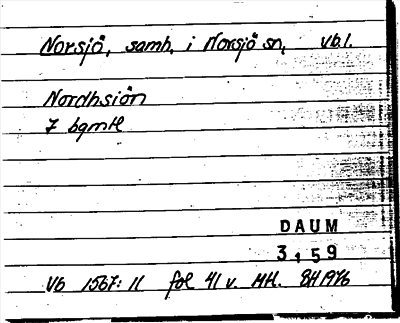 Norsjö, samh. i Norsjö sn, Vb l.
Nordhsiön
7 bgmtl
DAUM
3,59
Vb 1567: 11 fol 41 v. HH. BH 1976